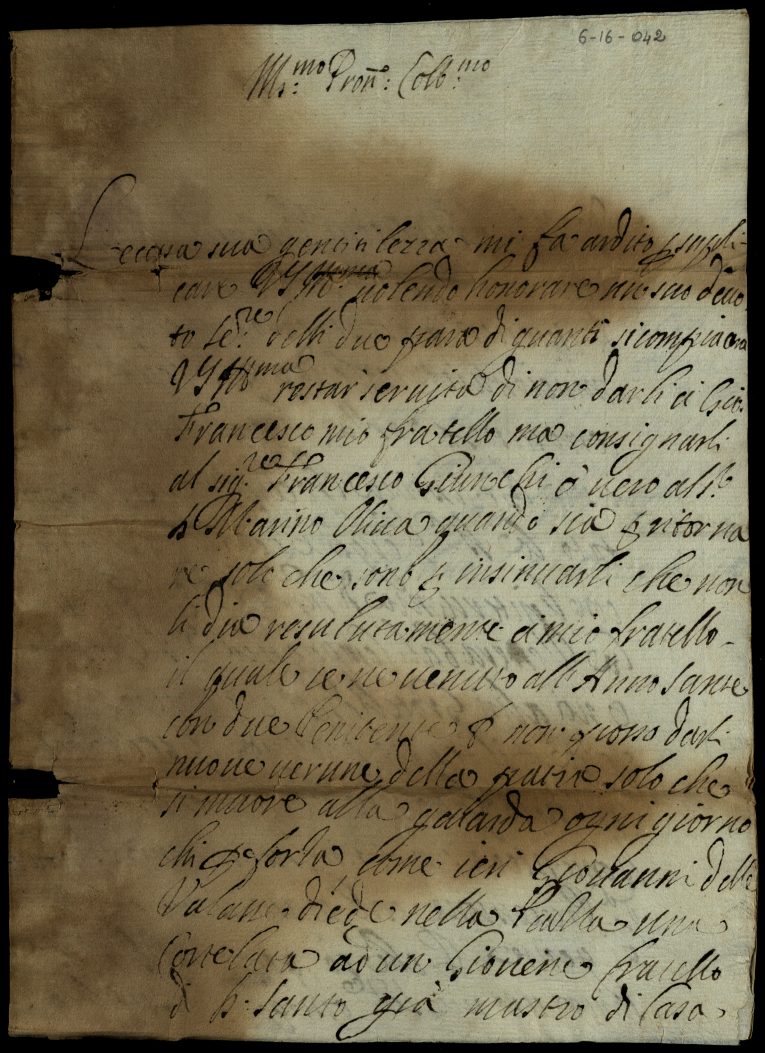 6-16-042
Ill:mo Pron: Col:mo
L'eccessa sua gentilezza mi fa ardito supli-
care VS Ill:ma volendo honorare un suo devo
to Se:re delli due para di guanti si compiaccia
VS Ill:ma restar servita di non darli a Gio:
Francesco mio fratello ma consignarli
al sig:re Francesco Giunchi ò vero al S:r
Marino quando sia ritorna
re solo che sono insinuarli che non
li dia resulutamente a mio fratello
il quale se ne venuto all'Anno Santo
con due Penitente non posso darli
nuove verune della patria solo che
si more alla gaiarda ogni giorno
chi per forza, come ieri Giovanni delle
Valane diede nella Pialla una
Cortelata ad un Giovene fratello
di Santo già mastro di Casa